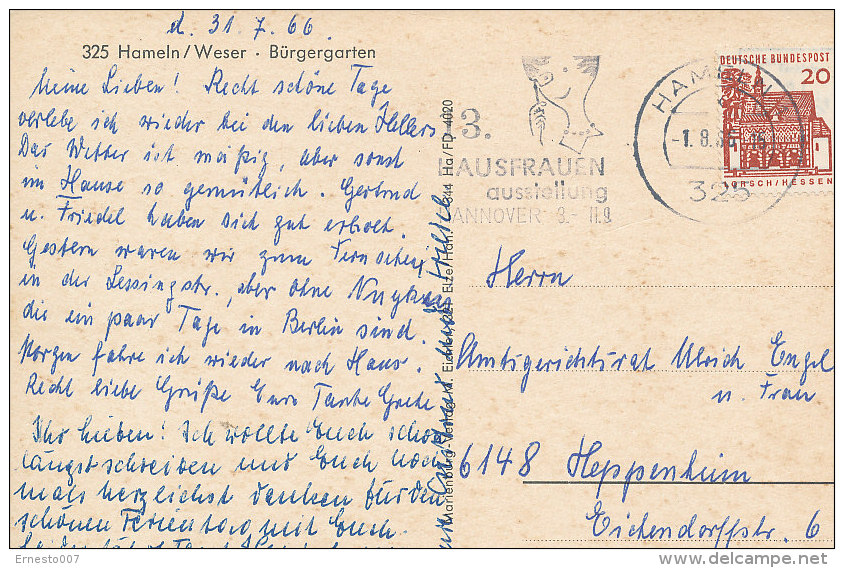 d. 31.7.66.
325 Hameln/Weser · Bürgergarten
Meine Lieben! Recht schöne Tage
verlebe ich wieder bei den lieben Hellers
Das Wetter ist mäßig, aber sonst
im Hause so gemütlich. Gertrud
u. Friedel haben sich gut erholt.
Gestern waren wir zum Fernsehen
in der Lessingstr., aber ohne
die ein paar Tage in Berlin sind.
Morgen fahre ich wieder nach Haus.
Recht liebe Grüße Eure Tante Grete
Ihr Lieben! Ich wollte Euch schon
längst schreiben und Euch noch
mals herzlichst danken für den
schönen Ferientag mit Euch.
Ha/FD 4020
13.
HAUSFRAUEN
ausstellung
HANNOVER 3.- 11.9
HAMELN
-1.8.66
325
DEUTSCHE BUNDESPOST
20
LORSCH/HESSEN
Herrn
Amtsgerichtsrat Ulrich Engel
u. Frau
6148 Heppenheim
Eichendorffstr. 6
Ernesto007
delcampe.net